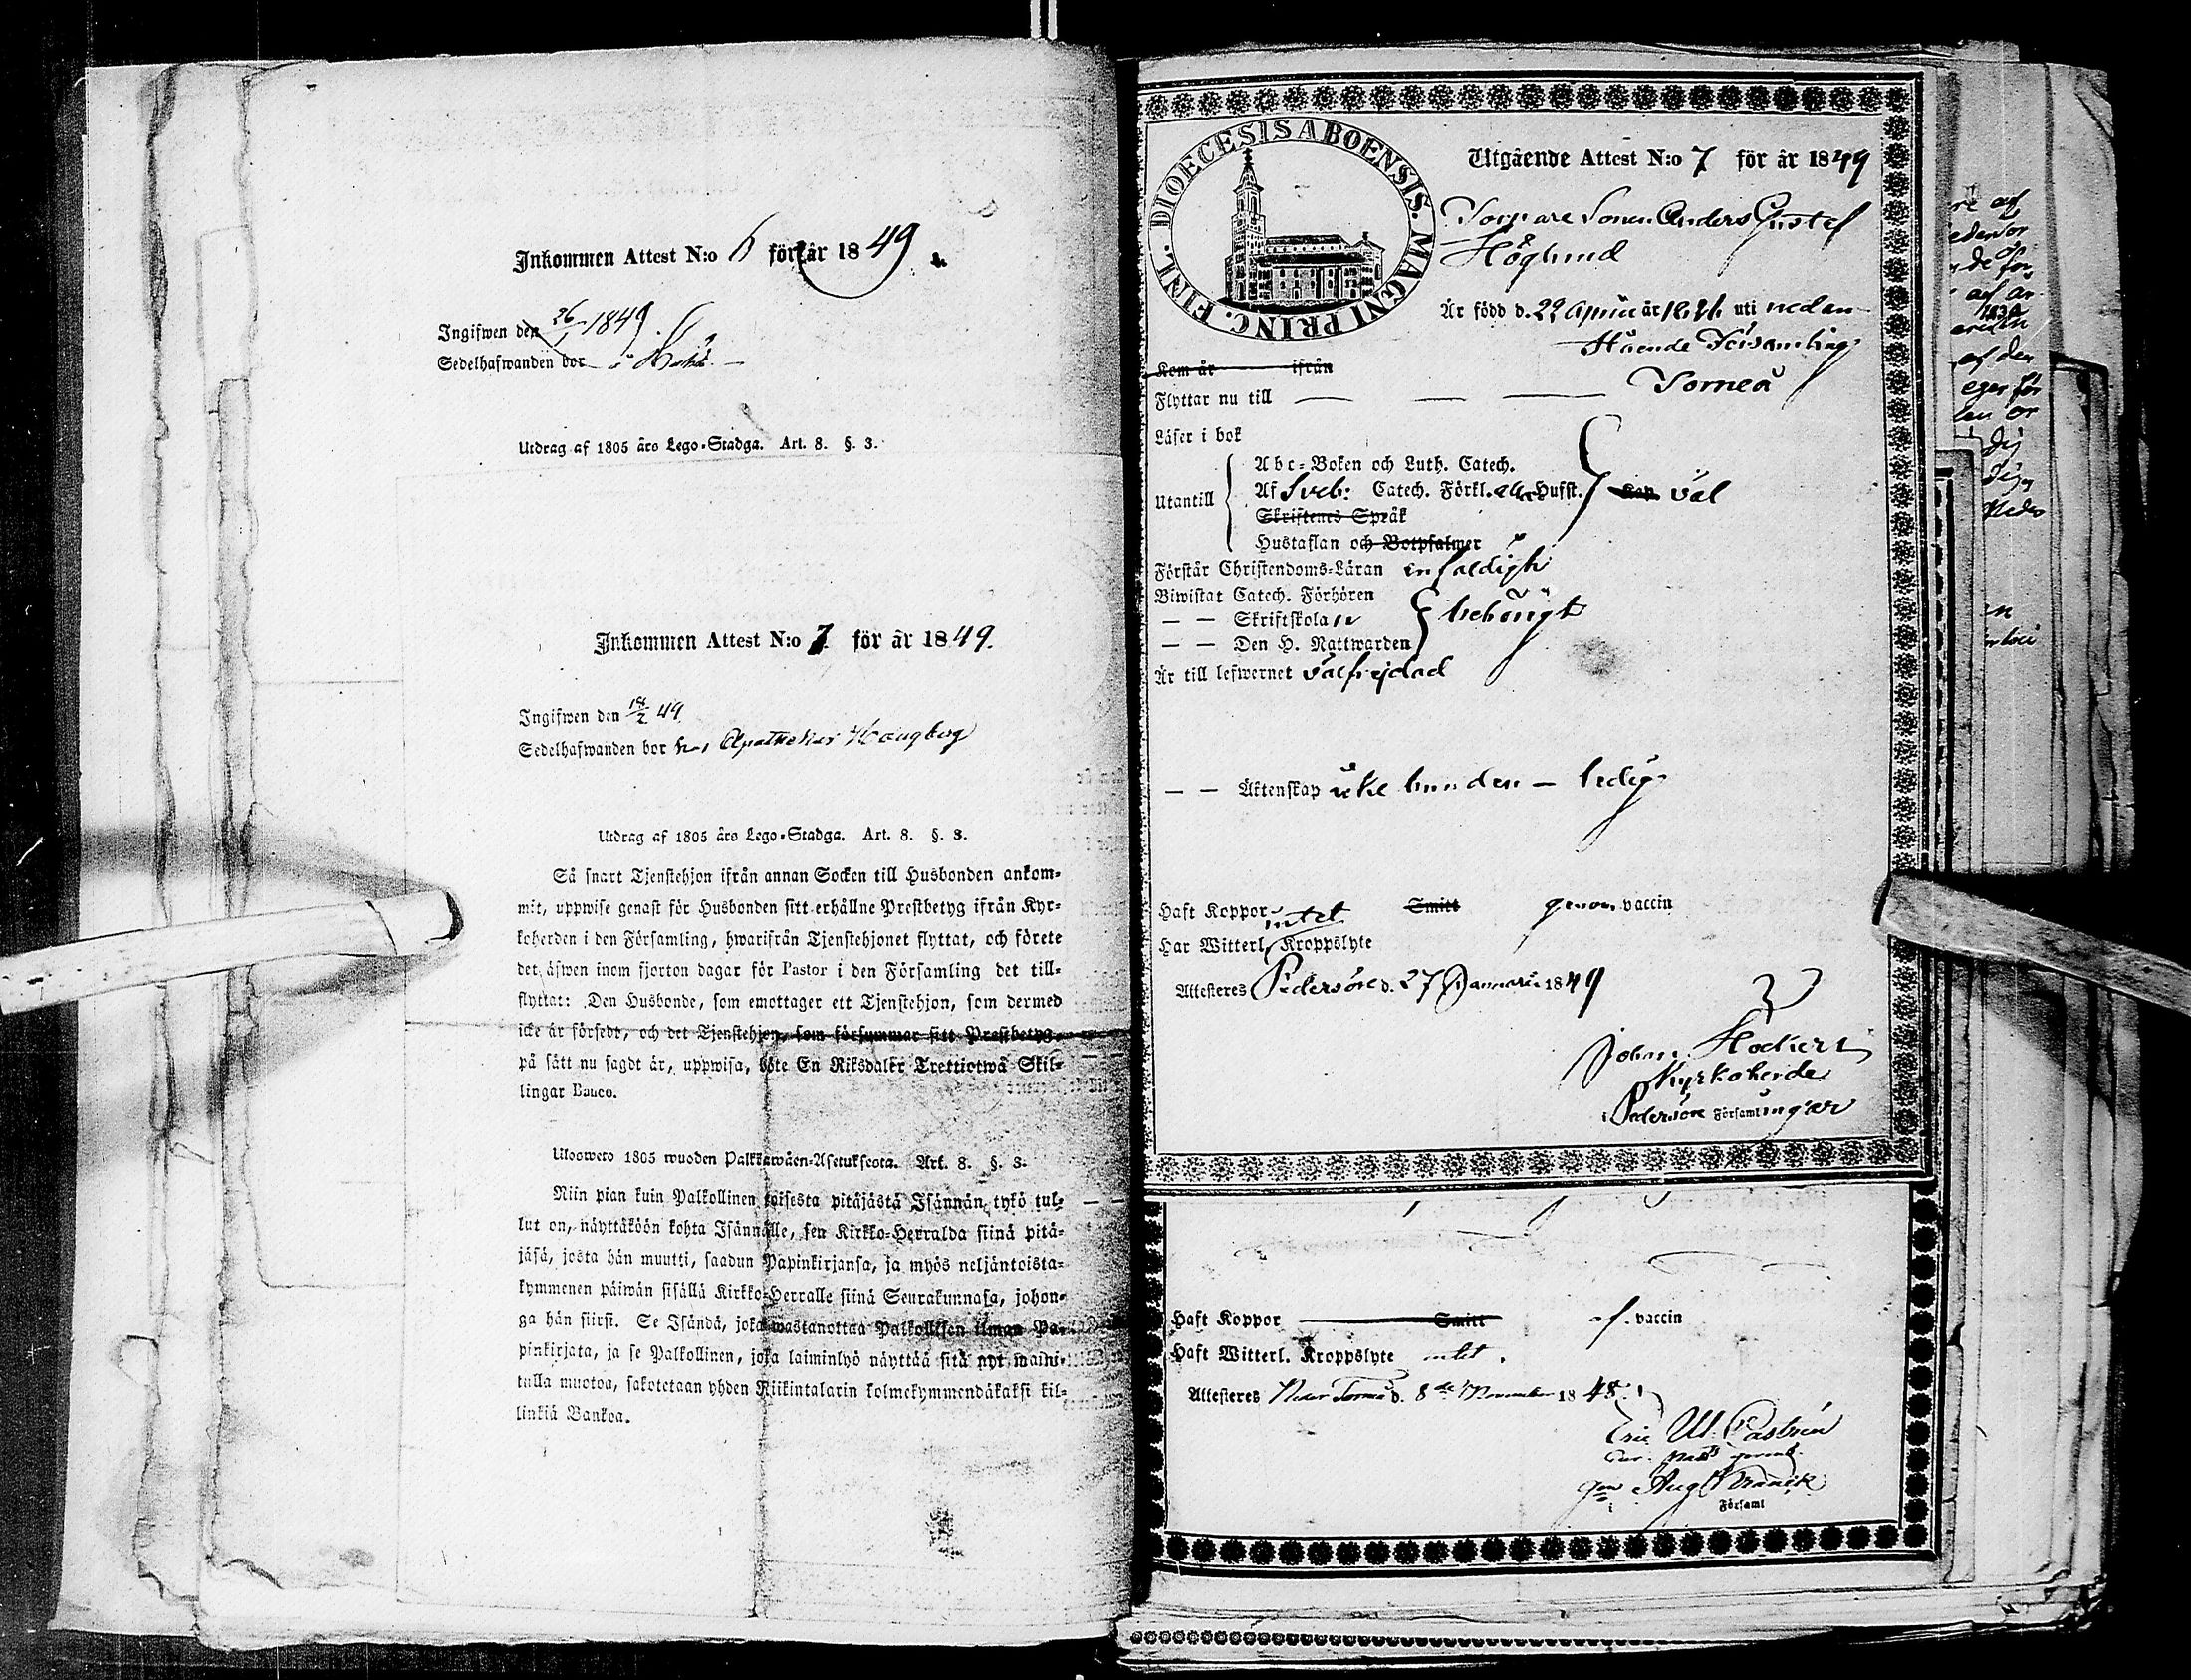 Inkommen Attest N:o 6 för år 1849
Ingifwen den 26/1 1849
Sedelhafwanden bor i
Utdrag af 1805 års Lego-Stadga. Art. 8. §. 3.
Inkommen Attest N:o 7 för år 1849.
Ingifwen den 18/2 49
Sedelhafwanden bor hos Apothekar Haugberg
Utdrag af 1805 års Lego-Stadga. Art. 8. §. 3.
Så snart Tjenstehjon ifrån annan Socken till Husbonden ankom-
mit, uppwise genast för Husbonden sitt erhållne Prestbetyg ifrån Kyr-
koherden i den Församling, hwarifrån Tjenstehjonet flyttat, och förete
det äfwen inom fjorton dagar för Pastor i den Församling det till-
flyttat: Den Husbonde, som emottager ett Tjenstehjon, som dermed
icke är försedt, och det Tjenstehjon, som försummar sitt Prestbetyg,
på sätt nu sagdt är, uppwisa, böte En Riksdaler Trettiotwå Skil-
lingar Banco.
Ulosweto 1805 wuoden Palkkawäen-Asetuksesta. Art. 8. §. 3.
Niin pian kuin Palkollinen toisesta pitäjästä Isännän tykö tul-
lut on, näyttäköön kohta Isännälle, sen Kirkko-Herralda siinä pitä-
jäsä, josta hän muutti, saadun Papinkirjansa, ja myös neljäntoista-
kymmenen päiwän sisällä Kirkko-Herralle siinä Seurakunnasa, johon-
ga hän siirsi. Se Isändä, joka wastanottaa Palkollisen ilman Pa-
pinkirjata, ja se Palkollinen, joka laiminlyö näyttää sitä nyt maini-
tulla muotoa, sakotetaan yhden Riikintalarin kolmekymmendäkaksi kil-
linkiä Bankoa.
DIOECESIS ABOENSIS. MAGNI PRINC. FINL.
Utgående Attest N:o 7 för år 1849
Torpare Sonen Anders Gustaf
Höglund
Är född d. 22 April år 1826 uti nedan
stående Församling
Kom år ifrån
Flyttar nu till Torneå
Läser i bok
Utantill
Abc-Boken och Luth. Catech.
Af Sveb: Catech. Förkl. Hufst. Kap. väl
Skriftenes Språk
Hustaflan och Botpsalmer
Förstår Christendoms-Läran enfaldigt
Biwistat Catech. Förhören
— — Skriftskolan behörigt
— — Den H. Nattwarden
Är till lefwernet välfrejdad
— — Äktenskap icke bunden – ledig
Haft Koppor Smitt genom vaccin
Har Witterl. Kroppslyte intet
Attesteres Pedersöre d. 27 Januarii 1849
Johan Höckert
Kyrkoherde
i Pedersöre Församlingar
Haft Koppor Smitt af vaccin
Haft Witterl. Kroppslyte intet.
Attesteres Neder Torneå d. 8de November 1848.
Eric Ul. Castrén
gm Aug. Franck
i Församl